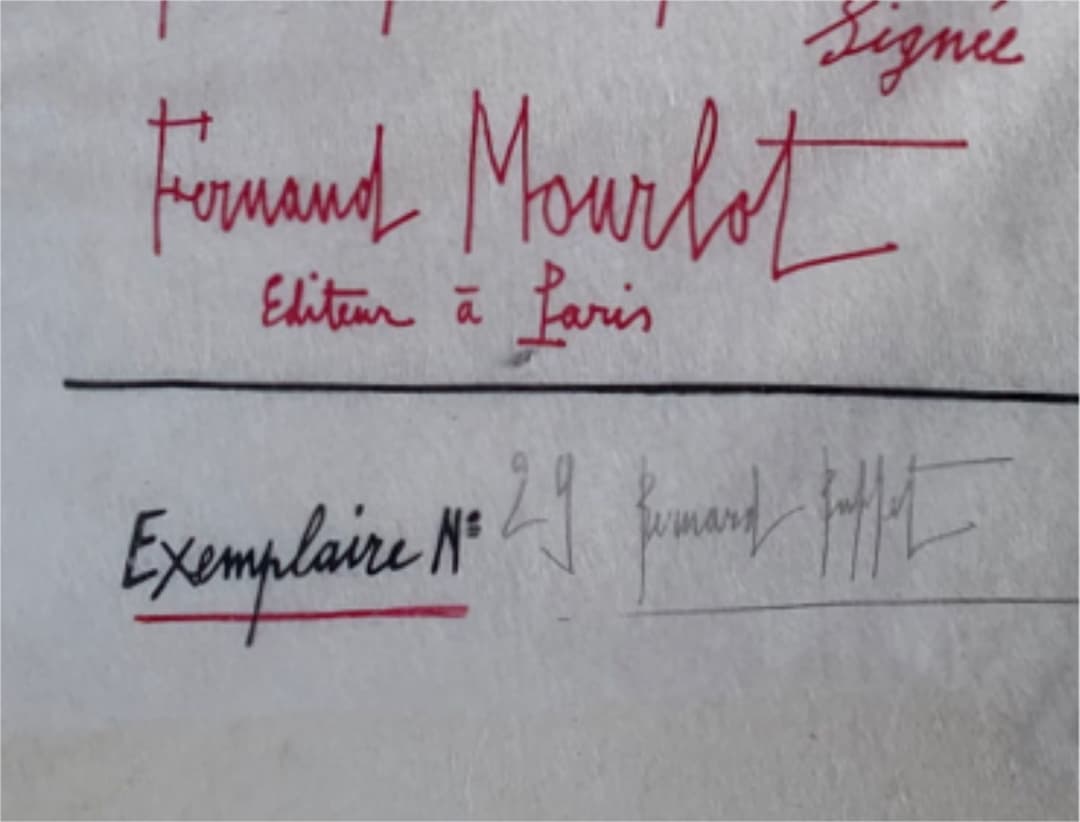 Signée
Fernand Mourlot
Editeur à Paris
Exemplaire Nº 29 Bernard Buffet